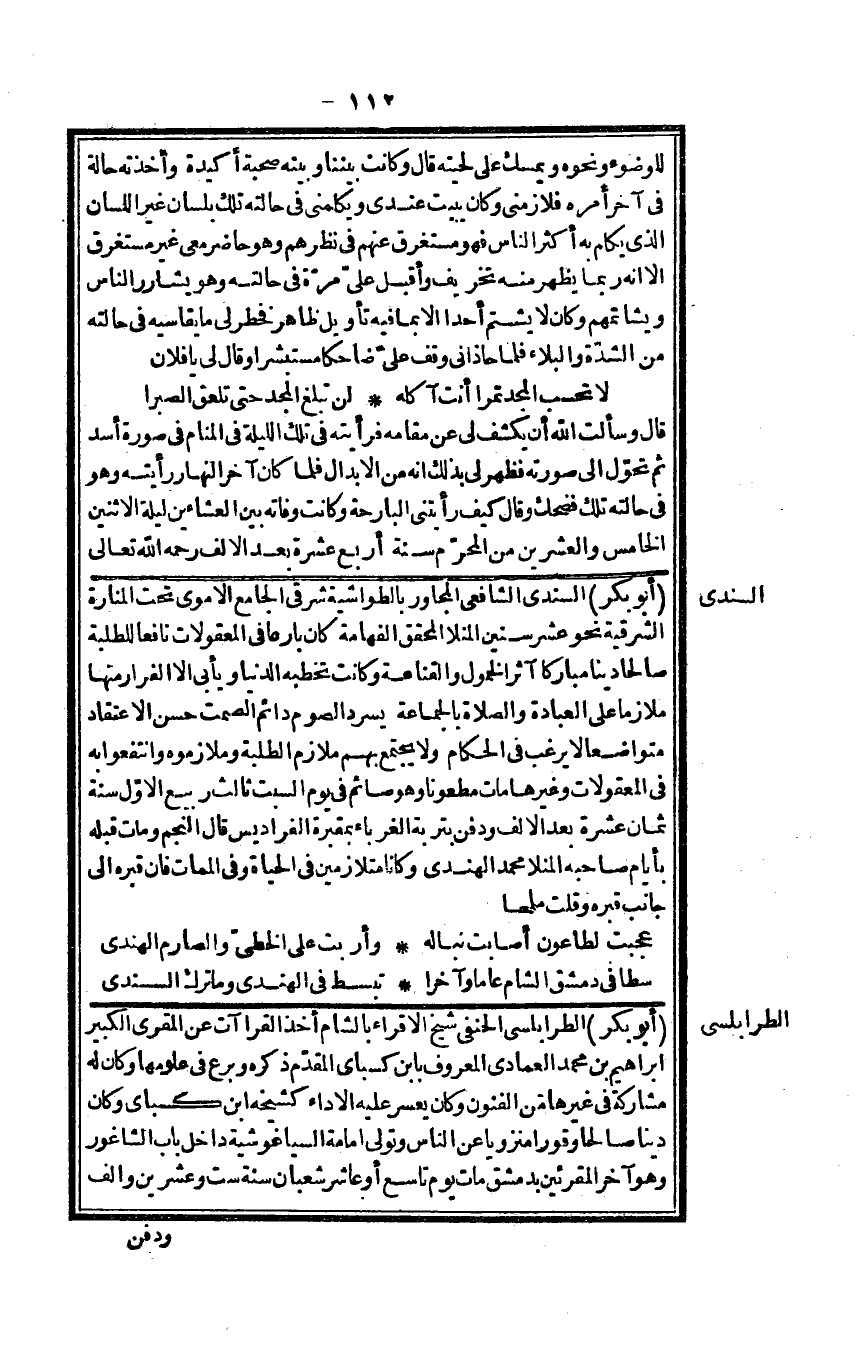 ١١٢ –
للوضوء ونحوه ويمسك على لحيته قال وكانت بيننا وبينه صحبة أكيدة وأخذته حالة
فى آخر أمره فلازمنى وكان يبيت عندى ويكلمنى فى حالته تلك بلسان غير اللسان
الذى يكلم به أكثر الناس فهو مستغرق عنهم فى نظرهم وهو حاضر معى غير مستغرق
الا انه ربما يظهر منه تخريف وأقبل علىّ مرّة فى حالته وهو يشارر الناس
ويشاتمهم وكان لا يشتم أحدا الا بما فيه تأويل ظاهر فخطر لى ما يقاسيه فى حالته
من الشدّة والبلاء فلما حاذانى وقف علىّ ضاحكا مستبشرا وقال لى يا فلان
لا تحسب المجد تمرا أنت آكله * لن تبلغ المجد حتى تلعق الصبرا
قال وسألت الله أن يكشف لى عن مقامه فرأيته فى تلك الليلة فى المنام فى صورة أسد
ثم تحوّل الى صورته فظهر لى بذلك انه من الابدال فلما كان آخر النهار رأيته وهو
فى حالته تلك فضحك وقال كيف رأيتنى البارحة وكانت وفاته بين العشاءين ليلة الاثنين
الخامس والعشرين من المحرّم سنة أربع عشرة بعد الالف رحمه الله تعالى
السندى
(أبو بكر) السندى الشافعى المجاور بالطواشية شرقى الجامع الاموى تحت المنارة
الشرقية نحو عشر سنين المنلا المحقق الفهامة كان بارعا فى المعقولات نافعا للطلبة
صالحا دينا مباركا آثر الخمول والقناعة وكانت تخطبه الدنيا ويأبى الا الفرار منها
ملازما على العبادة والصلاة بالجماعة يسرد الصوم دائم الصمت حسن الاعتقاد
متواضعا لا يرغب فى الحكام ولا يجتمع بهم ملازم الطلبة وملازموه وانتفعوا به
فى المعقولات وغيرها مات مطعونا وهو صائم فى يوم السبت ثالث ربيع الاوّل سنة
ثمان عشرة بعد الالف ودفن بتربة الغرباء بمقبرة الفراديس قال النجم ومات قبله
بأيام صاحبه المنلا محمد الهندى وكانا متلازمين فى الحياة وفى الممات فان قبره الى
جانب قبره وقلت ملمحا
عجبت لطاعون أصابت نباله * وأربت على الخطىّ والصارم الهندى
سطا فى دمشق الشام عاما وآخرا * تبسط فى الهندى وما ترك السندى
الطرابلسى
(أبو بكر) الطرابلسى الحنفى شيخ الاقراء بالشام أخذ القراآت عن المقرى الكبير
ابراهيم بن محمد العمادى المعروف بابن كسباى المقدّم ذكره وبرع فى علومها وكان له
مشاركة فى غيرها من الفنون وكان يعسر عليه الاداء كشيخه ابن كسباى وكان
دينا صالحا وقورا منزويا عن الناس وتولى امامة السياغوشية داخل باب الشاغور
وهو آخر المقرئين بدمشق مات يوم تاسع أو عاشر شعبان سنة ست وعشرين والف
ودفن